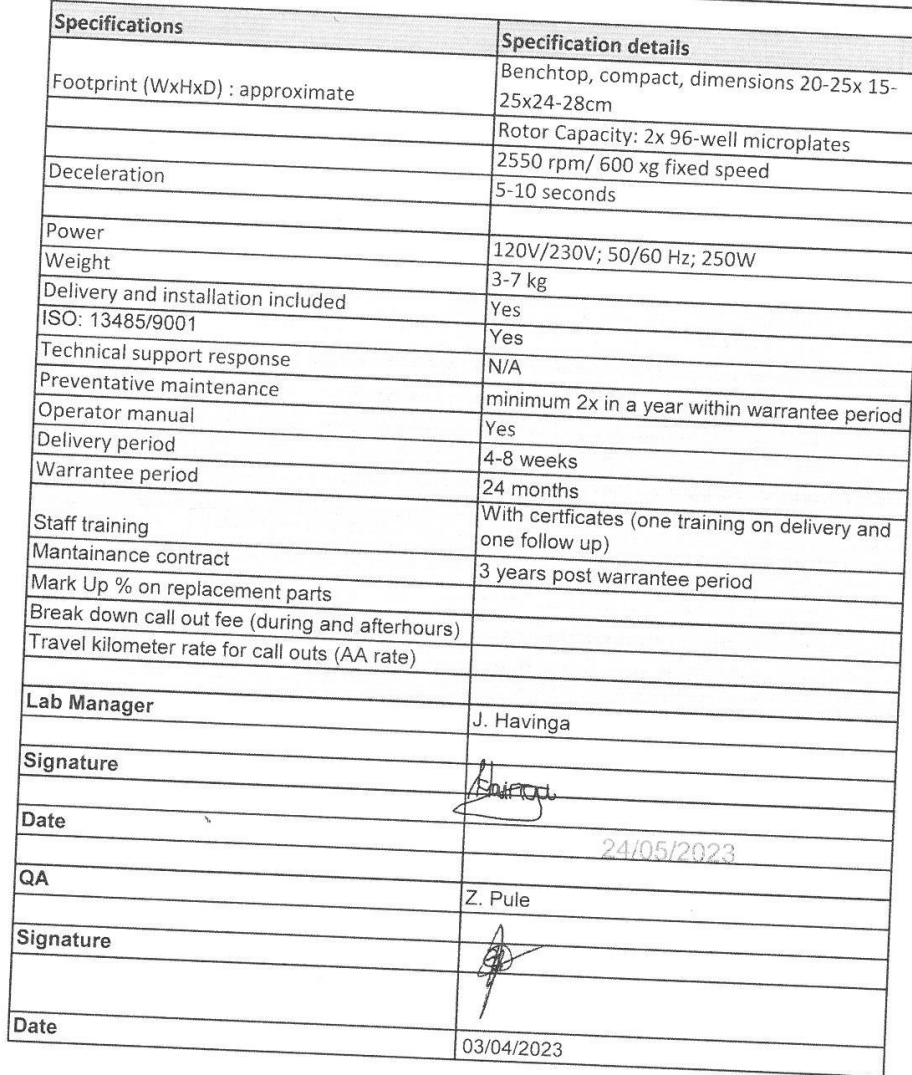 Specifications Specification details
Footprint (WxHxD) : approximate Benchtop, compact, dimensions 20-25x 15-
25x24-28cm
Rotor Capacity: 2x 96-well microplates
2550 rpm/ 600 xg fixed speed
Deceleration 5-10 seconds
Power 120V/230V; 50/60 Hz; 250W
Weight 3-7 kg
Delivery and installation included Yes
ISO: 13485/9001 Yes
Technical support response N/A
Preventative maintenance minimum 2x in a year within warrantee period
Operator manual Yes
Delivery period 4-8 weeks
Warrantee period 24 months
Staff training With certficates (one training on delivery and
one follow up)
Mantainance contract 3 years post warrantee period
Mark Up % on replacement parts
Break down call out fee (during and afterhours)
Travel kilometer rate for call outs (AA rate)
Lab Manager J. Havinga
Signature Havinga
Date 24/05/2023
QA Z. Pule
Signature
Date 03/04/2023